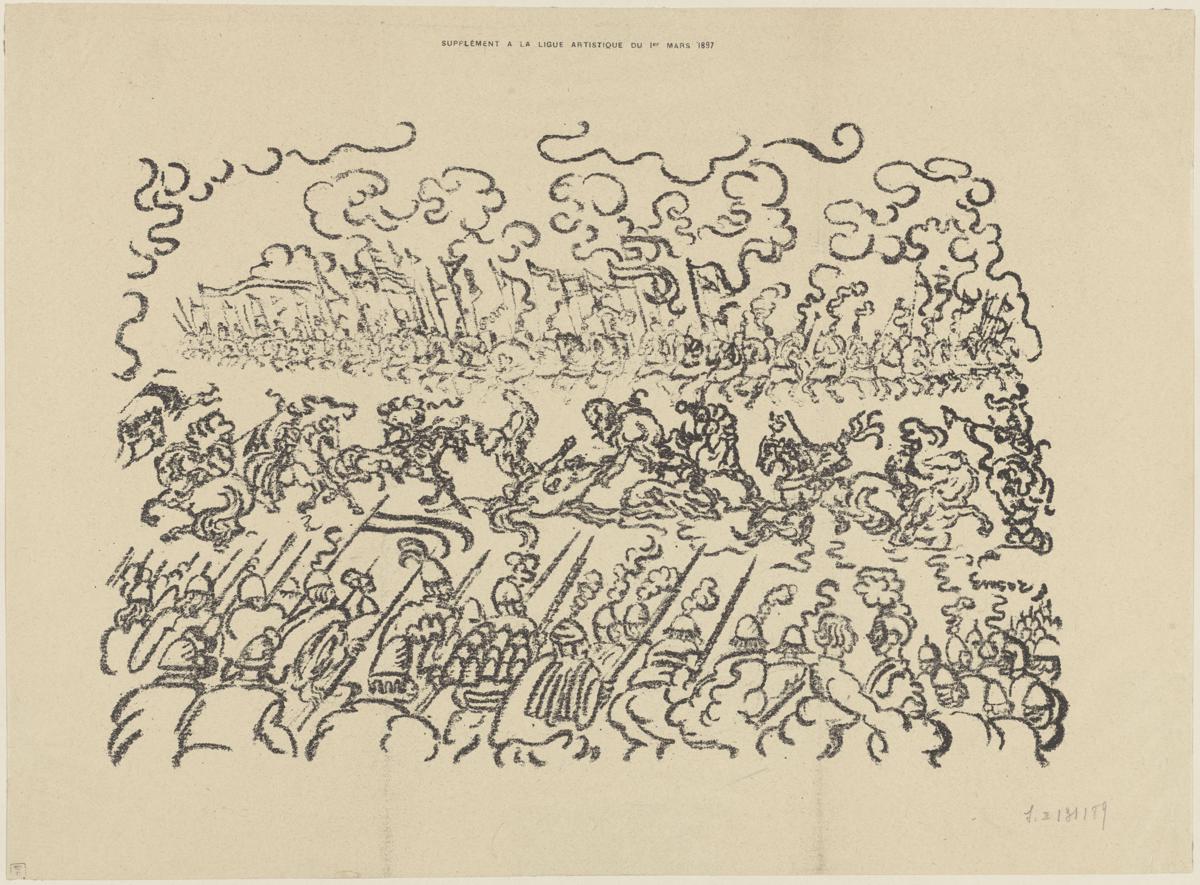 SUPPLÉMENT A LA LIGUE ARTISTIQUE DU 1er MARS 1897
Ensor
S. II 131189